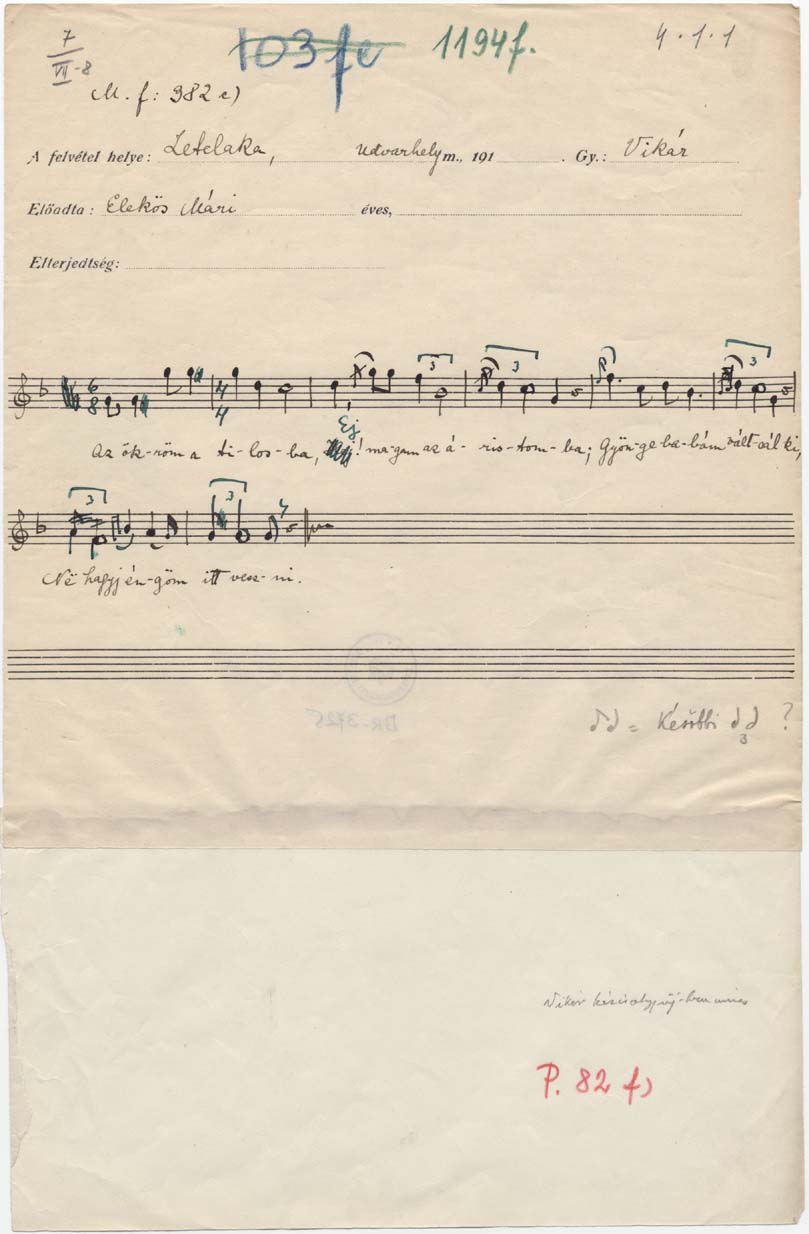 7
VII-8
103 fe 1194f. 4.1.1
M. f: 982 c)
A felvétel helye: Zetelaka, Udvarhely m., 191 . Gy.: Vikár
Előadta: Elekös Mári éves,
Elterjedtség:
3 3 3
6 8 4 4
Ej
Az ök-röm a ti-los-ba, ! ma-gam az á-ris-tom-ba; Gyön-ge ba-bám vált-cál ki,
3 3
Në hagyj én-göm itt vesz-ni.
BR-3725
= Későbbi 3 ?
Vikár
P. 82 f)